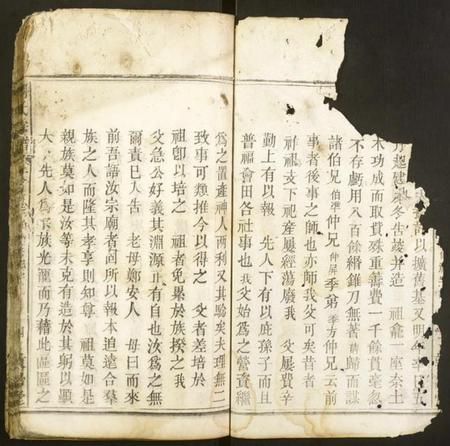 可以擴舊基又明年
力起建冬古茇并造 祖龕一座奈土
木功成而取貲殊重善費一千餘貫毫忽
不存虧用八百餘緡錐刀無著 歸而謀
諸伯兄 仲兄 季弟 仲兄云前
事者後事之師也亦師我父可矣昔者
祖支下祀產屢經蕩廢我 父屢費辛
勤上有以報 先人下有以庇孫子而且
普福會田各社事也我父始為之營資繼
為之置產神人兩利又其驗矣夫理無二
致事可類推今以得之 父者差培於
祖卽以培之 祖者免累於族揆之我
父急公好義其淵源正有自也汝為之無
爾責已入告 老母鄭安人 母曰而來
前吾語汝宗廟者何所以報本追遠合羣
族之人而隆其孝享則知尊 祖莫如是
親族莫如是汝等未克有造於其躬以顯
大 先人為宗族光寵而乃藉此區區之